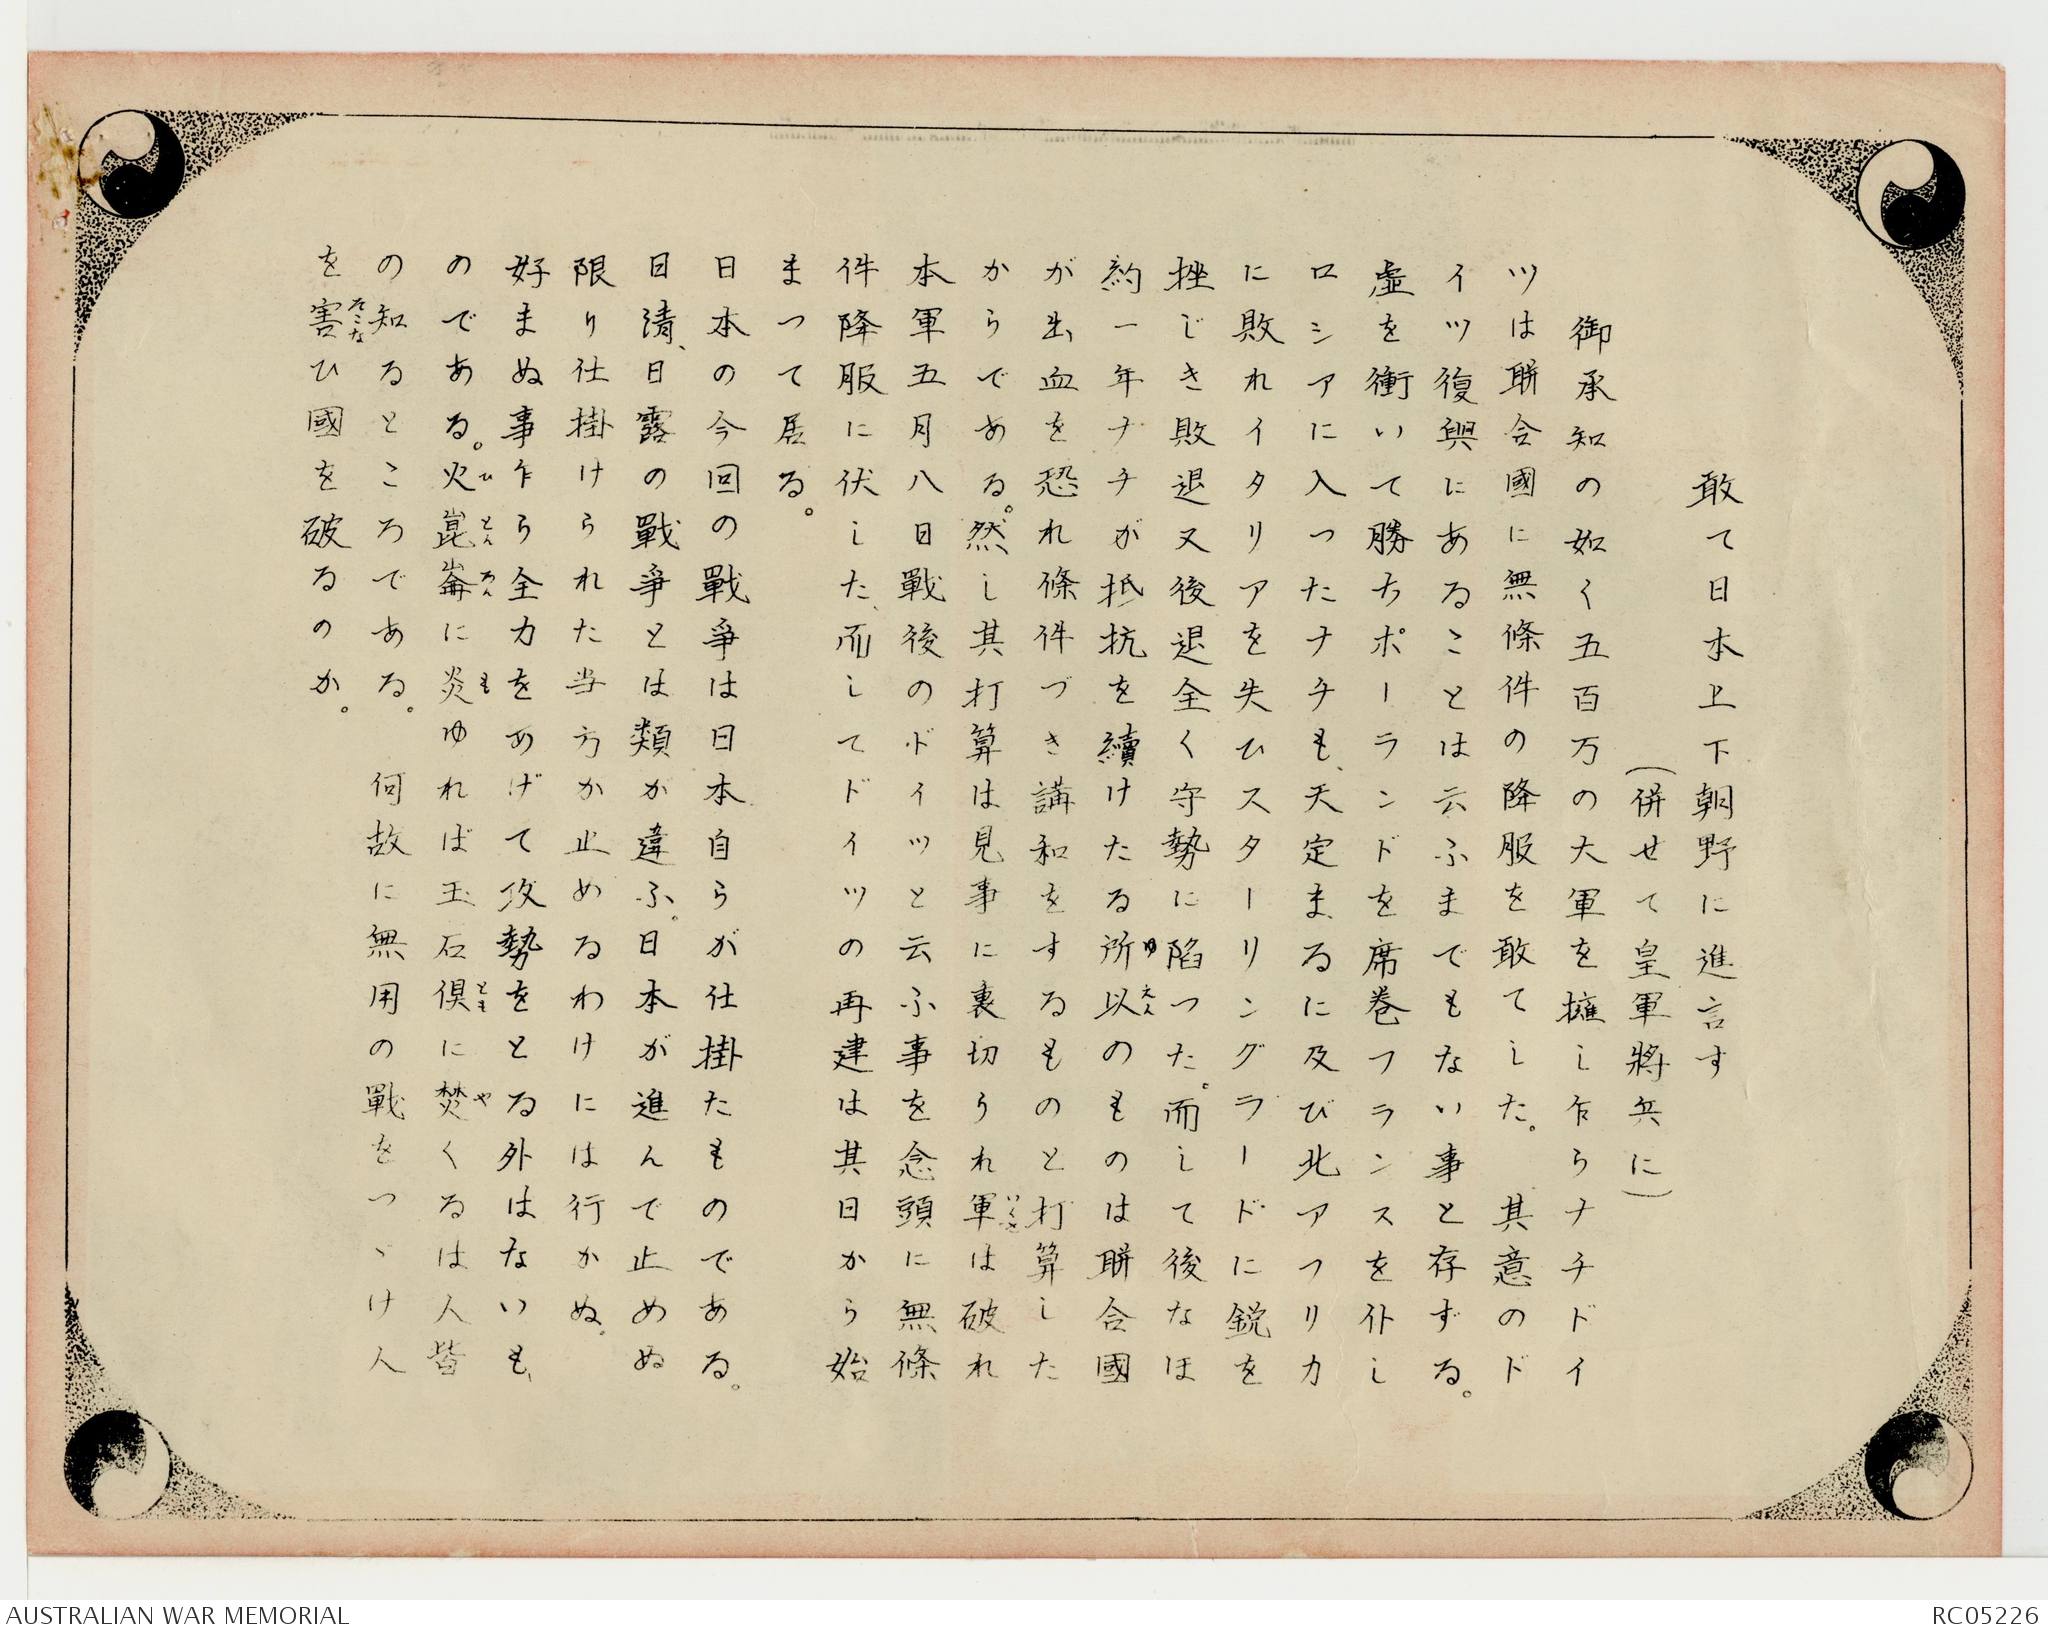 敢て日本上下朝野に進言す
(併せて皇軍將兵に)
御承知の如く五百万の大軍を擁し乍らナチドイ
ツは聯合國に無條件の降服を敢てした。 其意のド
イツ復興にあることは云ふまでもない事と存ずる。
虚を衝いて勝ちポーランドを席巻フランスを仆し
ロシアに入つたナチも、天定まるに及び北アフリカ
に敗れイタリアを失ひスターリングラードに鋭を
挫じき敗退又後退全く守勢に陷つた。而して後なほ
約一年ナチが抵抗を續けたる所以のものは聯合國
が出血を恐れ條件づき講和をするものと打算した
からである。然し其打算は見事に裏切られ軍は破れ
本軍五月八日戰後のドイツと云ふ事を念頭に無條
件降服に伏した、而してドイツの再建は其日から始
まつて居る。
日本の今回の戰爭は日本自らが仕掛たものである。
日清、日露の戰爭とは類が違ふ。日本が進んで止めぬ
限り仕掛けられた当方か止めるわけには行かぬ。
好まぬ事乍ら全力をあげて攻勢をとる外はないも、
のである。火崑崙に炎ゆれば玉石倶に焚くるは人皆
の知るところである。 何故に無用の戰をつゞけ人
を害ひ國を破るのか。
ゆゑん
いくさ
ひ とん ろん も とも や
そこな
AUSTRALIAN WAR MEMORIAL
RC05226